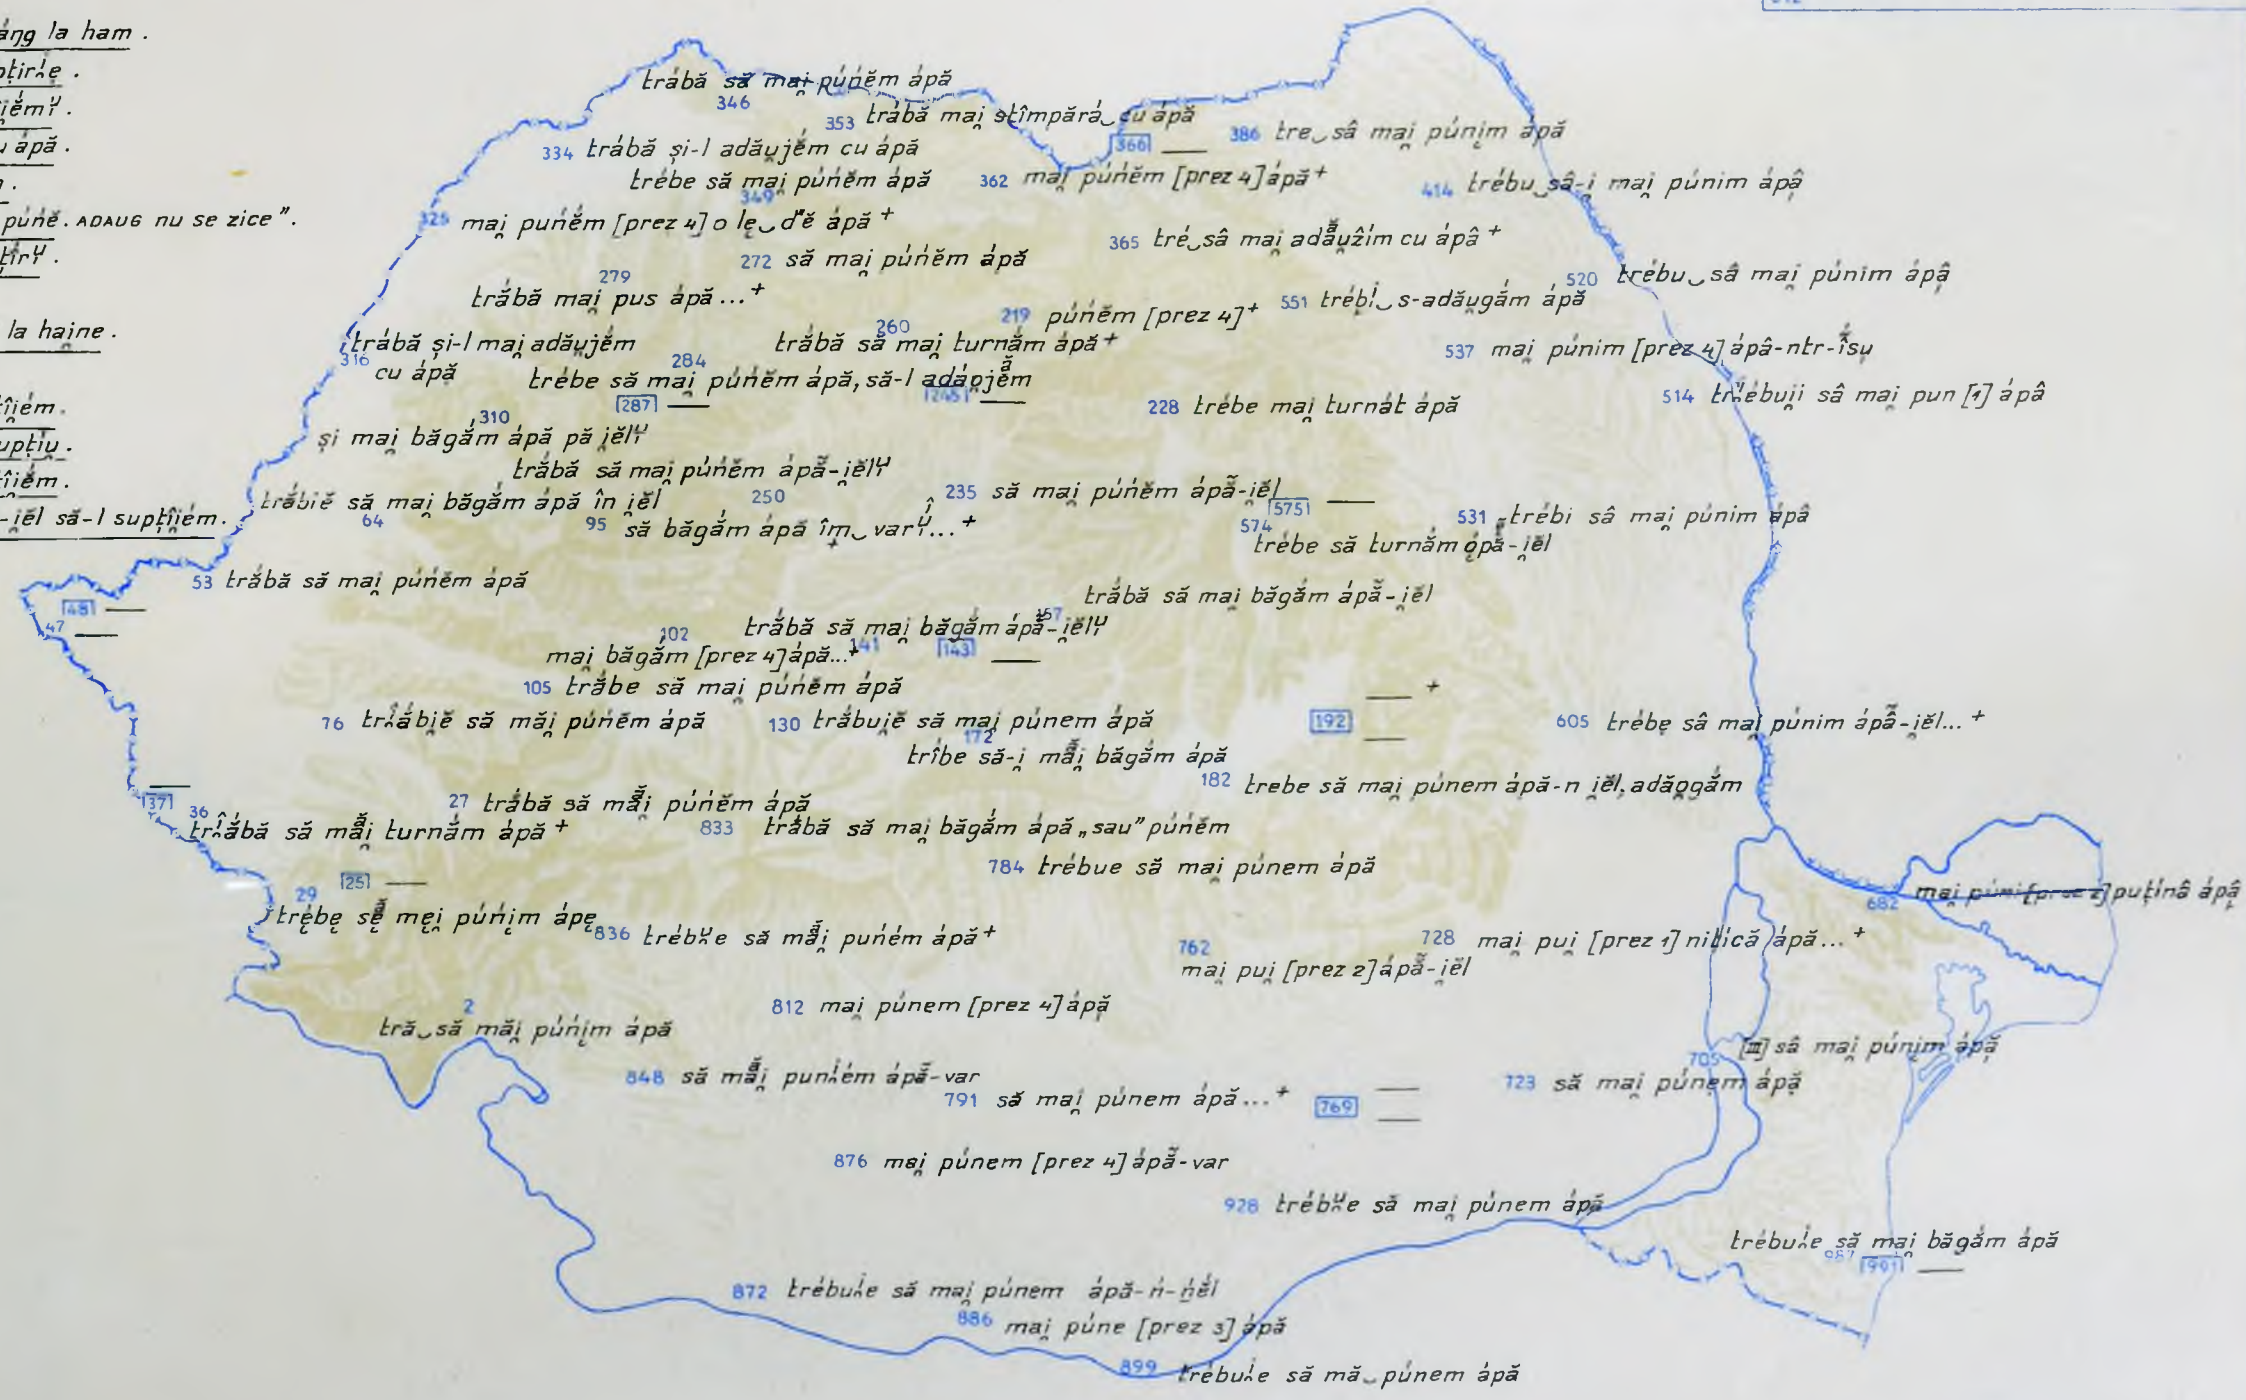 la ham .
púńĕ. ADAUG nu se zice".
la haine .
-i̯ĕl să-l supțîi̯ém.
trắbă să mai̯ púńĕm ápă
346
353 trắbă mai̯ stîmpărá‿cu ápă
366 —
386 tre‿sâ mai̯ púni̯m ápă
334 trắbă și-l adău̯jém cu ápă
trébe să mai̯ púńĕm ápă
349
362 mai̯ púńĕm [prez 4] ápă +
414 trébu‿sâ-i̯ mai̯ púnim ápâ̯
325 mai̯ puńĕ́m [prez 4] o le̯‿d'ĕ ápă +
365 tré‿sâ mai̯ adău̯žím cu ápâ +
272 să mai̯ púńĕm ápă
279
trắbă mai̯ pus ápă... +
520 trébu‿sâ mai̯ púnim ápâ̯
551 trébi‿s-adău̯gắm ápă
219 púńĕm [prez 4] +
trắbă și-l mai̯ adău̯jĕ́m
316 cu ápă
260
trắbă să mai̯ turnắm ápă +
537 mai̯ púnim [prez 4] ápâ-ntr-î́su̯
284
trébe să mai̯ púńĕm ápă, să-l adáo̯jĕm
287 —
245 —
228 trébe mai̯ turnát ápă
514 trĕ́bui̯i sâ mai̯ pun [1] ápâ
310
și mai̯ băgắm ápă pă i̯ĕl
trắbă să mai̯ púńĕm ápắ-i̯ĕl
250
235 să mai̯ púńĕm ápắ-i̯ĕl
575 —
trắbiĕ să mai̯ băgắm ápă în i̯ĕl
64
95 să băgắm ápă îm‿var... +
574
trébe să turnắm ápắ-i̯ĕl
531 trébi sâ mai̯ púnim ápâ
53 trắbă să mai̯ púńĕm ápă
48 —
47 —
157
trắbă să mai̯ băgắm ápắ-i̯ĕl
trắbă să mai̯ băgắm ápắ-i̯ĕl
141
143 —
102
mai̯ băgắm [prez 4] ápă... +
105 trắbe să mai̯ púńĕm ápă
76 trắbiĕ să măi̯ púńĕm ápă
130 trắbui̯ĕ să mai̯ púnem ápă
192 — +
—
605 trébe̯ sâ mai̯ púnim ápấ-i̯ĕl... +
172
trî́be să-i̯ mẵi̯ băgắm ápă
182 trebe să mai̯ púnem ápă-n i̯ĕl, adăo̯gắm
37 —
27 trắbă să mẵi̯ púńĕm ápă
36
trắbă să mẵi̯ turnắm ápă +
833 trắbă să mai̯ băgắm ápă „sau" púńĕm
784 trébue să mai̯ púnem ápă
25 —
29
trébe̯ se̯ me̯i̯ púńi̯m ápe̯
682 mai̯ púni [prez 2] puțínâ ápâ̯
836 trébu̯e să mẵi̯ puńém ápă +
762
mai̯ pui̯ [prez 2] ápắ-i̯ĕl
728 mai̯ pui̯ [prez 1] nițícă ápă... +
2
tră‿să măi̯ púńi̯m ápă
812 mai̯ púnem [prez 4] ápă
705 [III] sâ mai̯ púni̯m ápă
848 să mẵi̯ puńém ápắ-var
791 să mai̯ púnem ápă... +
769 —
—
723 să mai̯ púne̯m ápă
876 mai̯ púnem [prez 4] ápắ-var
928 trébu̯e să mai̯ púnem ápă
trébui̯e să mai̯ băgắm ápă
987 991 —
872 trébui̯e să mai̯ púnem ápă-ń-ńĕ́l
886 mai̯ púne [prez 3] ápă
899 trébui̯e să mă‿púnem ápă